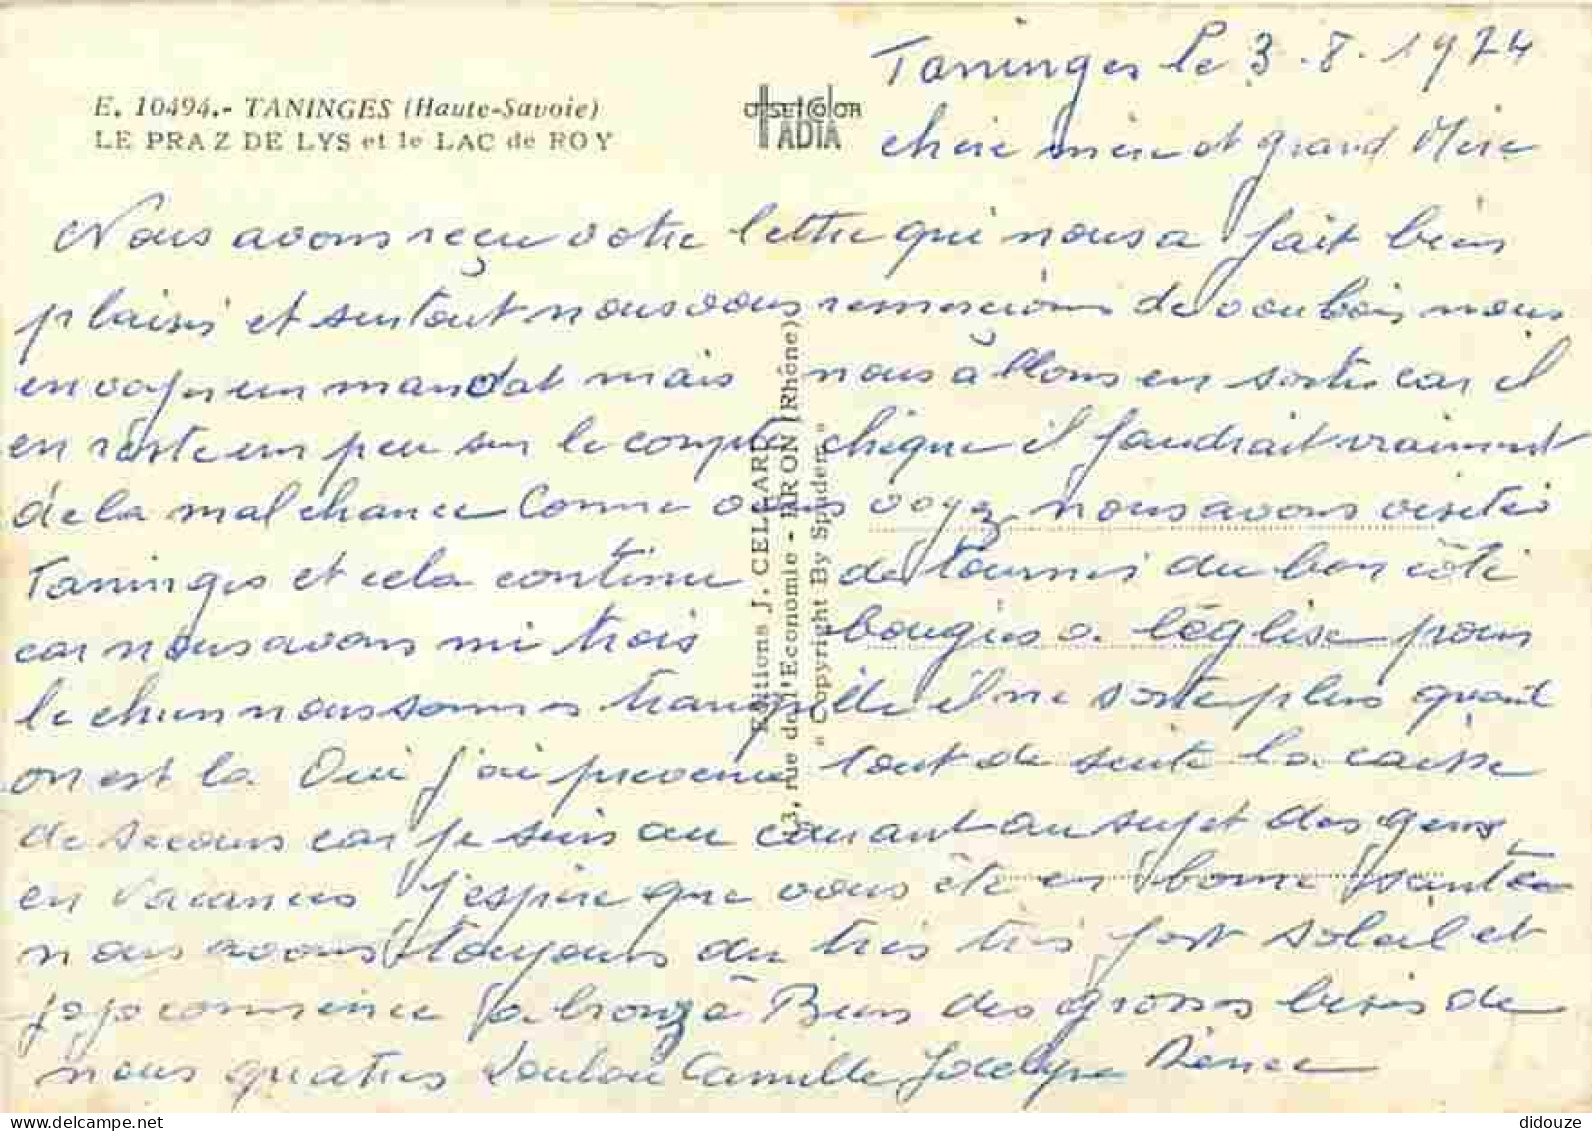 E. 10494.- TANINGES (Haute-Savoie)
LE PRAZ DE LYS et le LAC de ROY
offset Color
IADIA
Taninges le 3.8.1974
chère mère et grand Mère
Nous avons reçu votre lettre qui nous a fait bien
plaisir et surtout nous vous remercions de nous
envoyer un mandat mais nous allons en sortir car il
en reste un peu sur le compte chèque il faudrait vraiment
de la malchance Comme vous voyez nous avons visités
Taninges et cela continu de tourner du bon côté
car nous avons mi trois bougies a l'église pour
le chien nous sommes tranquille il ne sorte plus quand
on est la Oui j'ai prevenu tout de suite la caisse
de secours car je suis au courant au sujet des gens
en vacances J'espère que vous ête en bonne santée
nous avons toujours du très très fort soleil et
jojo commence a bronzé Bien des grosses bises de
nous quatres Loulou Camille Jocelyne
Editions J. CELLARD
43, rue de l'Economie - BRON (Rhône)
"Copyright By Spadem"
delcampe.net
didouze